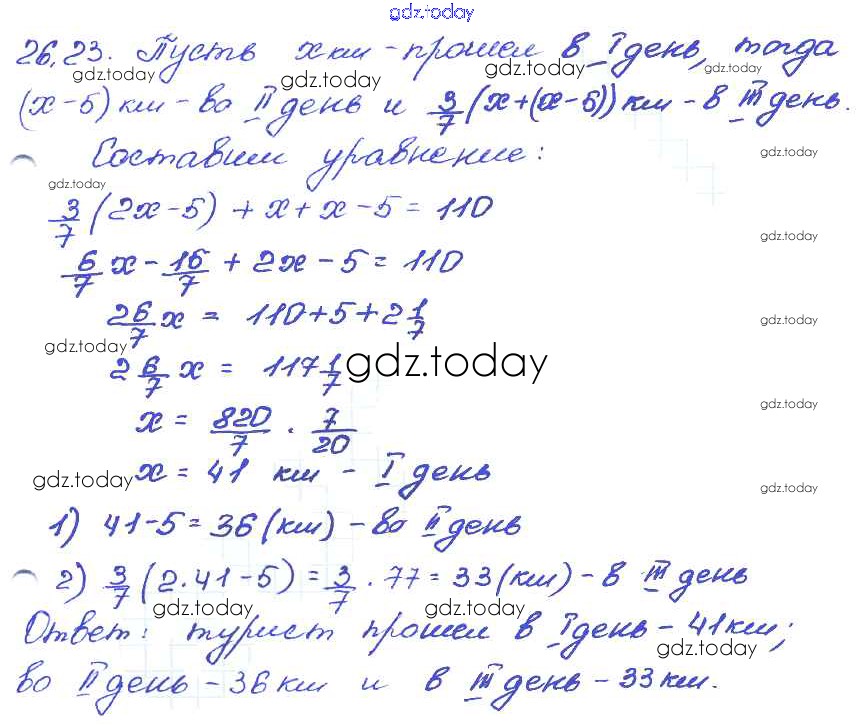 gdz.today
26.23. Пусть x км - прошел в I день, тогда
gdz.today gdz.today gdz.today gdz.today
(x-5) км - во II день и 3/7 (x+(x-5)) км - в III день.
Составим уравнение: gdz.today
gdz.today
3/7 (2x-5) + x + x - 5 = 110
gdz.today
6/7 x - 15/7 + 2x - 5 = 110
26/7 x = 110+5+2 1/7 gdz.today
gdz.today
2 6/7 x = 117 1/7 gdz.today
gdz.today
x = 820/7 · 7/20
gdz.today x = 41 км - I день gdz.today
1) 41-5=36 (км) - во II день
2) 3/7 (2·41-5) = 3/7 · 77 = 33 (км) - в III день
gdz.today gdz.today
Ответ: турист прошел в I день - 41 км;
gdz.today
во II день - 36 км и в III день - 33 км.